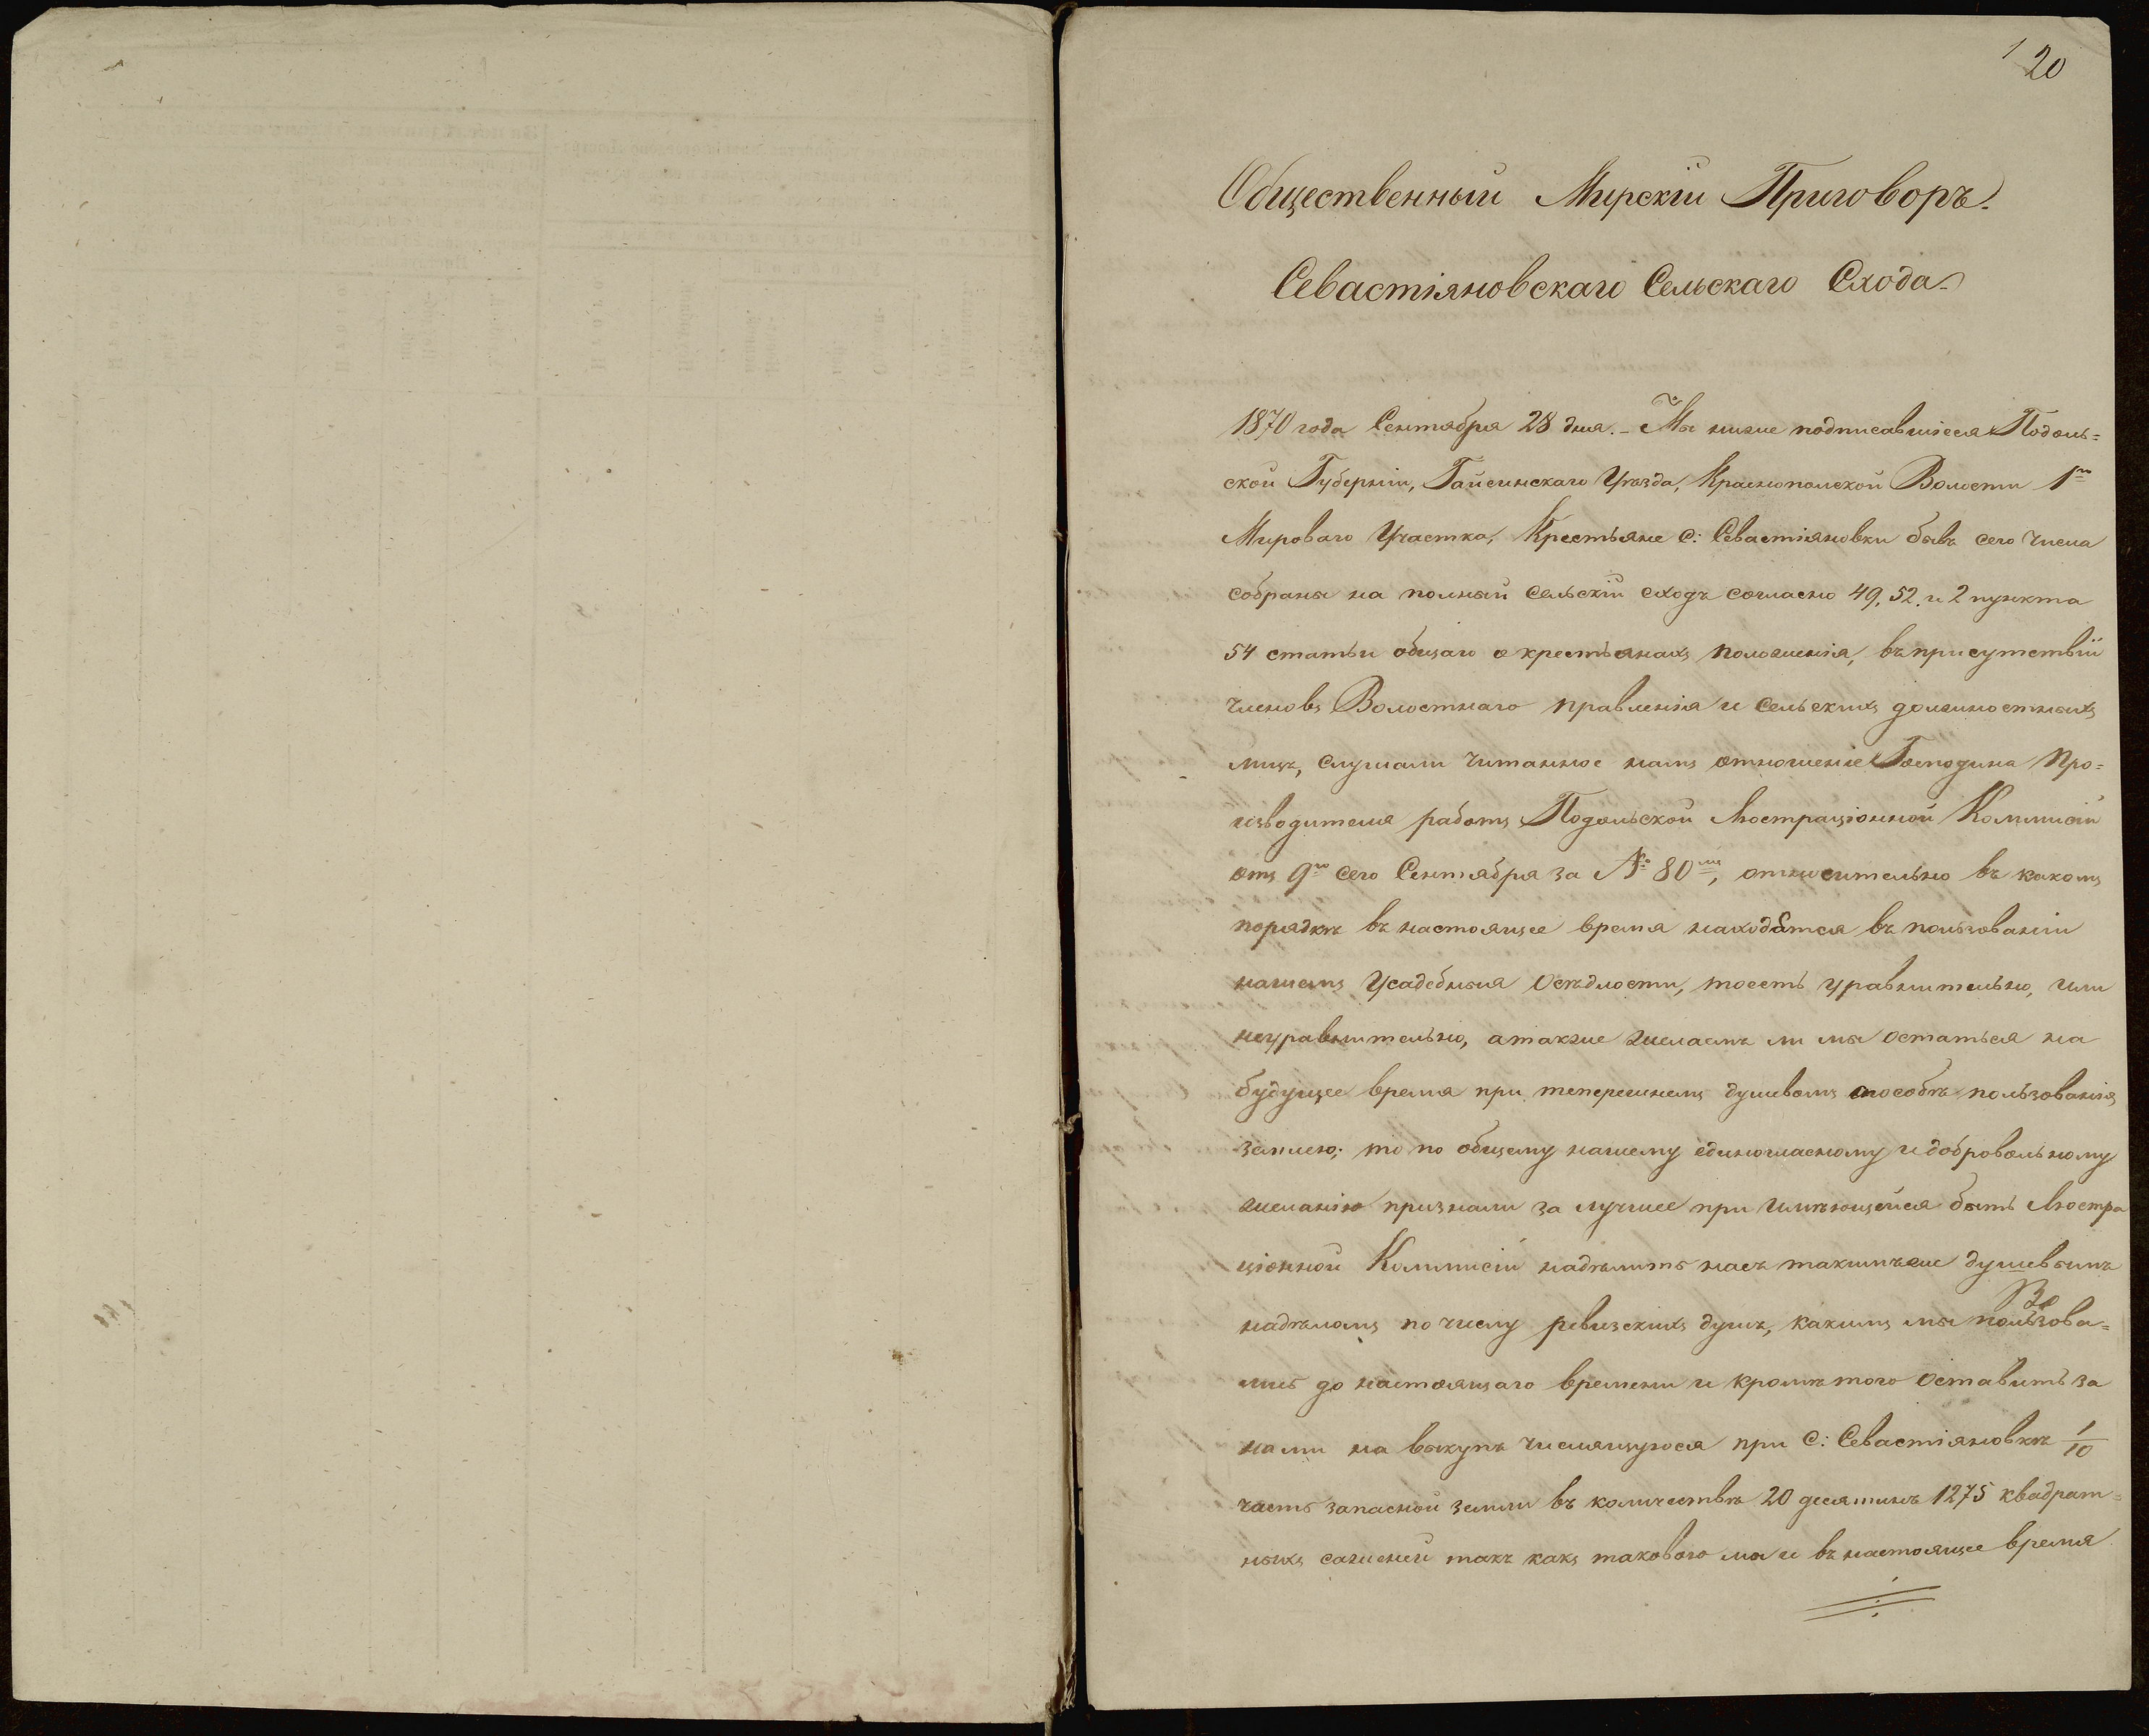 1 20
Общественный Мирскій Приговоръ.
Севастіяновскаго Сельскаго Схода.
1870 года Сентября 28 дня. – Мы ниже подписавшіеся Подоль=
ской Губерніи, Гайсинскаго Уѣзда, Краснополской Волости 1го
Мироваго Участка, Крестьяне С: Севастіяновки бывъ сего числа
собраны на полный Сельскій сходъ согласно 49, 52. и 2 пункта
54 статьи общаго о крестьянахъ положенія, въ присутствіи
членовъ Волостнаго правленія и Сельскихъ должностныхъ
лицъ, слушали читанное намъ отношеніе Господина Про=
изводителя работъ Подольской Люстраціонной Коммисіи
отъ 9го сего Сентября за № 80мъ, относительно въ какомъ
порядкѣ въ настоящее время находятся въ пользованіи
нашемъ Усадебныя Осѣдлости, тоесть уравнительно, или
неуравнительно, атакже желаемъ ли мы остаться на
будущее время при теперешнемъ душевомъ способѣ пользованія
землею; то по общему нашему единогласному и добровольному
желанію признали за лучшее при имѣющейся быть Люстра
ціонной Коммисіи надѣлить насъ такимъже душевымъ
надѣломъ по числу ревизскихъ душъ, какимъ мы пользова=
лись до настоящаго времени и кромѣ того Оставить за
нами на выкупъ числящуюся при С: Севастіяновкѣ 1/10
часть запасной земли въ количествѣ 20 десятинъ 1275 квадрат=
ныхъ саженей такъ какъ таковою мы и въ настоящее время